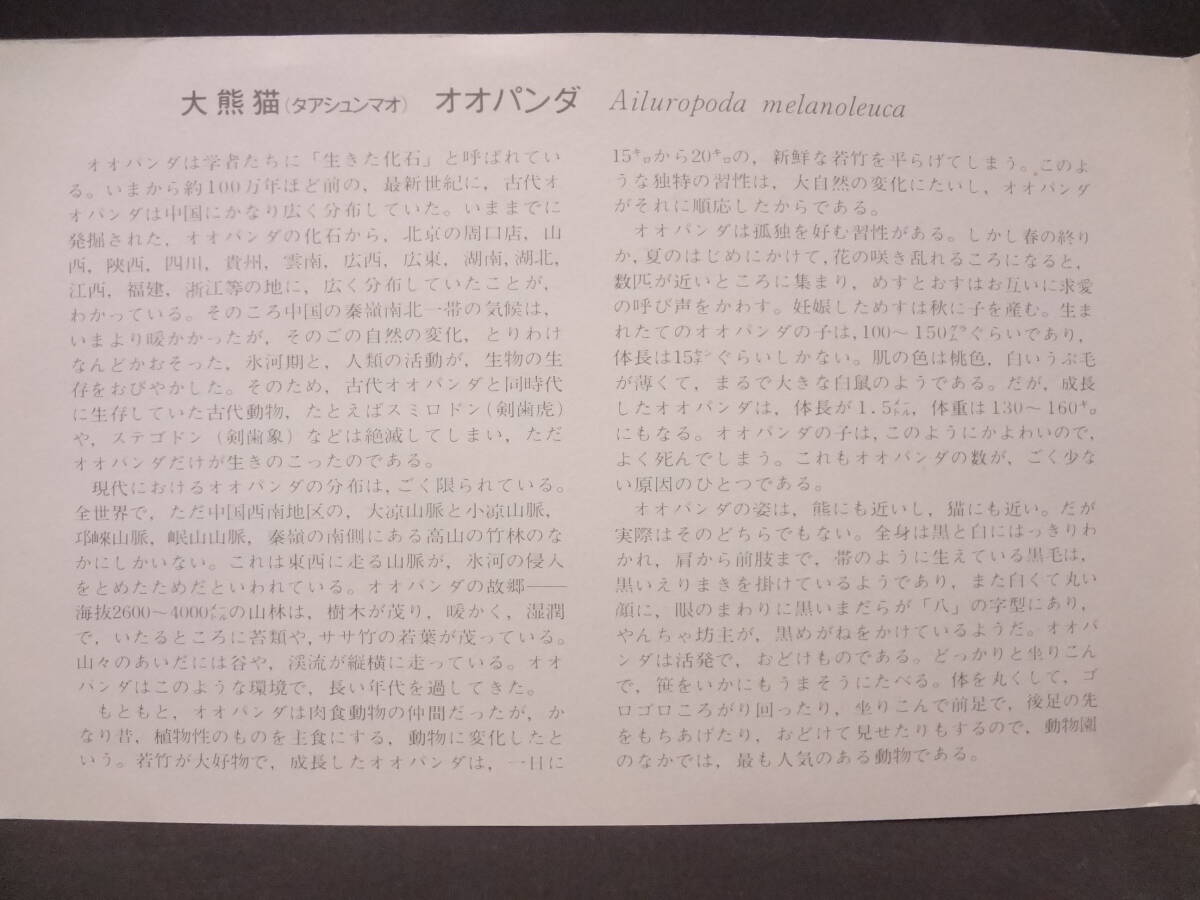 大熊猫(タアシュンマオ) オオパンダ Ailuropoda melanoleuca
オオパンダは学者たちに「生きた化石」と呼ばれてい
る。いまから約100万年ほど前の，最新世紀に，古代オ
オパンダは中国にかなり広く分布していた。いままでに
発掘された，オオパンダの化石から，北京の周口店，山
西，陝西，四川，貴州，雲南，広西，広東，湖南，湖北，
江西，福建，浙江等の地に，広く分布していたことが，
わかっている。そのころ中国の秦嶺南北一帯の気候は，
いまより暖かかったが，そのごの自然の変化，とりわけ
なんどかおそった，氷河期と，人類の活動が，生物の生
存をおびやかした。そのため，古代オオパンダと同時代
に生存していた古代動物，たとえばスミロドン(剣歯虎)
や，ステゴドン(剣歯象)などは絶滅してしまい，ただ
オオパンダだけが生きのこったのである。
現代におけるオオパンダの分布は，ごく限られている。
全世界で，ただ中国西南地区の，大凉山脈と小凉山脈，
邛崍山脈，岷山山脈，秦嶺の南側にある高山の竹林のな
かにしかいない。これは東西に走る山脈が，氷河の侵入
をとめたためだといわれている。オオパンダの故郷──
海抜2600〜4000㍍の山林は，樹木が茂り，暖かく，湿潤
で，いたるところに苔類や，ササ竹の若葉が茂っている。
山々のあいだには谷や，渓流が縦横に走っている。オオ
パンダはこのような環境で，長い年代を過してきた。
もともと，オオパンダは肉食動物の仲間だったが，か
なり昔，植物性のものを主食にする，動物に変化したと
いう。若竹が大好物で，成長したオオパンダは，一日に
15㌔から20㌔の，新鮮な若竹を平らげてしまう。このよ
うな独特の習性は，大自然の変化にたいし，オオパンダ
がそれに順応したからである。
オオパンダは孤独を好む習性がある。しかし春の終り
か，夏のはじめにかけて，花の咲き乱れるころになると，
数匹が近いところに集まり，めすとおすはお互いに求愛
の呼び声をかわす。妊娠しためすは秋に子を産む。生ま
れたてのオオパンダの子は，100〜150㌘ぐらいであり，
体長は15㌢ぐらいしかない。肌の色は桃色，白いうぶ毛
が薄くて，まるで大きな白鼠のようである。だが，成長
したオオパンダは，体長が1.5㍍，体重は130〜160㌔
にもなる。オオパンダの子は，このようにかよわいので，
よく死んでしまう。これもオオパンダの数が，ごく少な
い原因のひとつである。
オオパンダの姿は，熊にも近いし，猫にも近い。だが
実際はそのどちらでもない。全身は黒と白にはっきりわ
かれ，肩から前肢まで，帯のように生えている黒毛は，
黒いえりまきを掛けているようであり，また白くて丸い
顔に，眼のまわりに黒いまだらが「八」の字型にあり，
やんちゃ坊主が，黒めがねをかけているようだ。オオパ
ンダは活発で，おどけものである。どっかりと坐りこん
で，笹をいかにもうまそうにたべる。体を丸くして，ゴ
ロゴロころがり回ったり，坐りこんで前足で，後足の先
をもちあげたり，おどけて見せたりもするので，動物園
のなかでは，最も人気のある動物である。